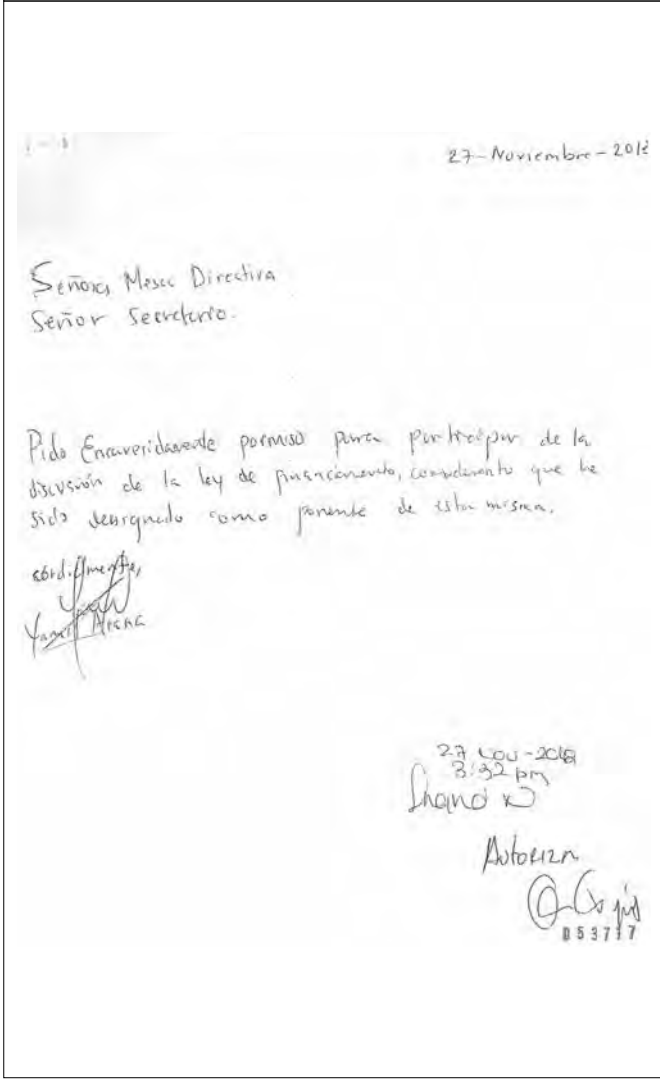 27-Noviembre-201
Señores Mesa Directiva
Señor Secretario.
Pido Encarecidamente permiso para participar de la
discusión de la ley de financiamiento, considerando que he
sido designado como ponente de esta misma.
cordialmente,
Yamil Arana
27 nov-2018
3:32 pm
Autoriza
053717